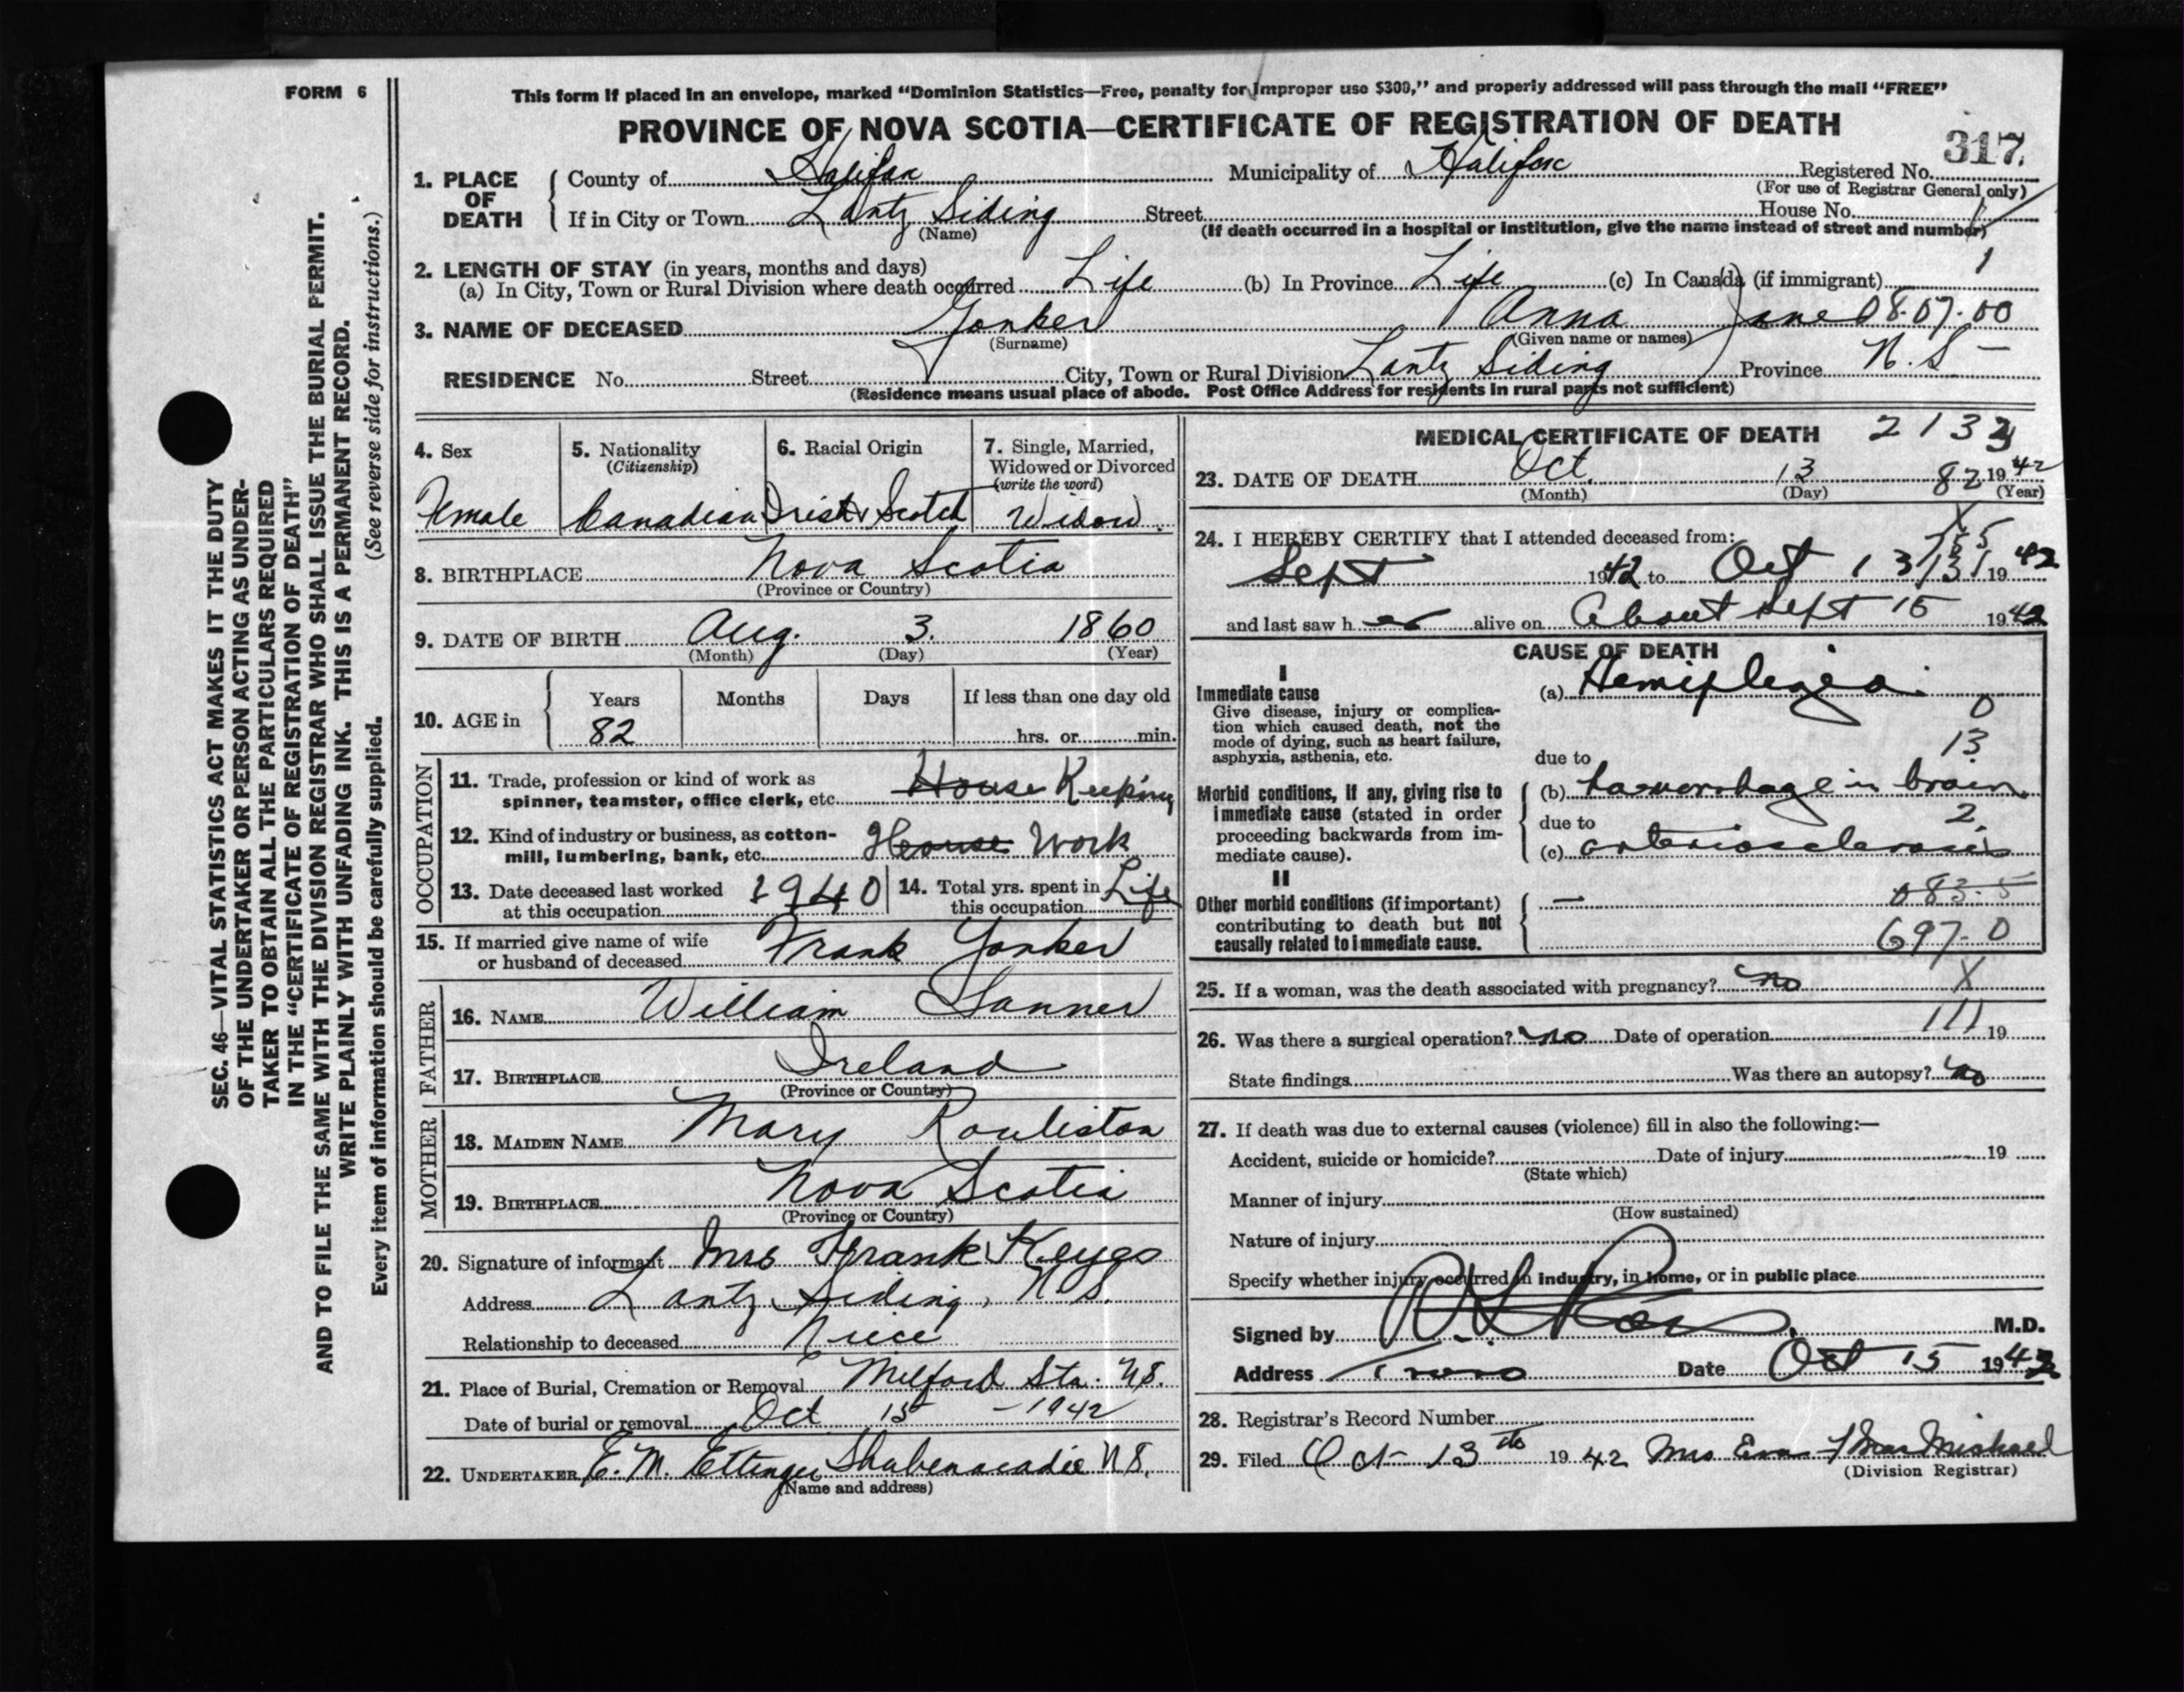 FORM 6
This form if placed in an envelope, marked “Dominion Statistics—Free, penalty for improper use $300,” and properly addressed will pass through the mail “FREE”
PROVINCE OF NOVA SCOTIA—CERTIFICATE OF REGISTRATION OF DEATH
317.
1. PLACE OF DEATH
County of Halifax Municipality of Halifax Registered No.
(For use of Registrar General only)
If in City or Town Lantz Siding Street House No.
(Name) (If death occurred in a hospital or institution, give the name instead of street and number)
2. LENGTH OF STAY (in years, months and days) 1
(a) In City, Town or Rural Division where death occurred Life (b) In Province Life (c) In Canada (if immigrant)
3. NAME OF DECEASED Yonker Anna Jane 08.07.00
(Surname) (Given name or names)
RESIDENCE No. Street City, Town or Rural Division Lantz Siding Province N.S—
(Residence means usual place of abode. Post Office Address for residents in rural parts not sufficient)
4. Sex
Female
5. Nationality
(Citizenship)
Canadian
6. Racial Origin
Irish & Scotch
7. Single, Married,
Widowed or Divorced
(write the word)
Widow.
8. BIRTHPLACE Nova Scotia
(Province or Country)
9. DATE OF BIRTH Aug. 3. 1860
(Month) (Day) (Year)
10. AGE in
Years Months Days If less than one day old
82 hrs. or min.
OCCUPATION
11. Trade, profession or kind of work as
spinner, teamster, office clerk, etc. House Keeping
12. Kind of industry or business, as cotton-
mill, lumbering, bank, etc. House Work
13. Date deceased last worked
at this occupation 1940
14. Total yrs. spent in
this occupation Life
15. If married give name of wife
or husband of deceased Frank Yonker
FATHER
16. NAME William
17. BIRTHPLACE Ireland
(Province or Country)
MOTHER
18. MAIDEN NAME Mary Rouliston
19. BIRTHPLACE Nova Scotia
(Province or Country)
20. Signature of informant Mrs Frank Keyes
Address Lantz Siding, N.S.
Relationship to deceased Niece
21. Place of Burial, Cremation or Removal Milford Sta. N.S.
Date of burial or removal Oct 15 — 1942
22. UNDERTAKER E. M. Ettinger Shubenacadie N.S.
(Name and address)
MEDICAL CERTIFICATE OF DEATH 2133
23. DATE OF DEATH Oct. 13 82 1942
(Month) (Day) (Year)
X
24. I HEREBY CERTIFY that I attended deceased from:
Sept 1942 to Oct 13 1942
and last saw her alive on About Sept 15 1942
CAUSE OF DEATH
I
Immediate cause
Give disease, injury or complica-
tion which caused death, not the
mode of dying, such as heart failure,
asphyxia, asthenia, etc.
(a) Hemiplegia.
0
13
due to
Morbid conditions, if any, giving rise to
immediate cause (stated in order
proceeding backwards from im-
mediate cause).
(b) haemorrhage in brain
due to 2.
(c) arteriosclerosis
II
Other morbid conditions (if important)
contributing to death but not
causally related to immediate cause.
— 083.5
697.0
25. If a woman, was the death associated with pregnancy? no X
26. Was there a surgical operation? no Date of operation 111 19
State findings Was there an autopsy? no
27. If death was due to external causes (violence) fill in also the following:—
Accident, suicide or homicide? Date of injury 19
(State which)
Manner of injury
(How sustained)
Nature of injury
Specify whether injury occurred in industry, in home, or in public place
Signed by M.D.
Address Truro Date Oct 15 1942
28. Registrar's Record Number
29. Filed Oct 13th 1942 Mrs Eva
(Division Registrar)
SEC. 46—VITAL STATISTICS ACT MAKES IT THE DUTY
OF THE UNDERTAKER OR PERSON ACTING AS UNDER-
TAKER TO OBTAIN ALL THE PARTICULARS REQUIRED
IN THE “CERTIFICATE OF REGISTRATION OF DEATH”
AND TO FILE THE SAME WITH THE DIVISION REGISTRAR WHO SHALL ISSUE THE BURIAL PERMIT.
WRITE PLAINLY WITH UNFADING INK. THIS IS A PERMANENT RECORD.
Every item of information should be carefully supplied. (See reverse side for instructions.)